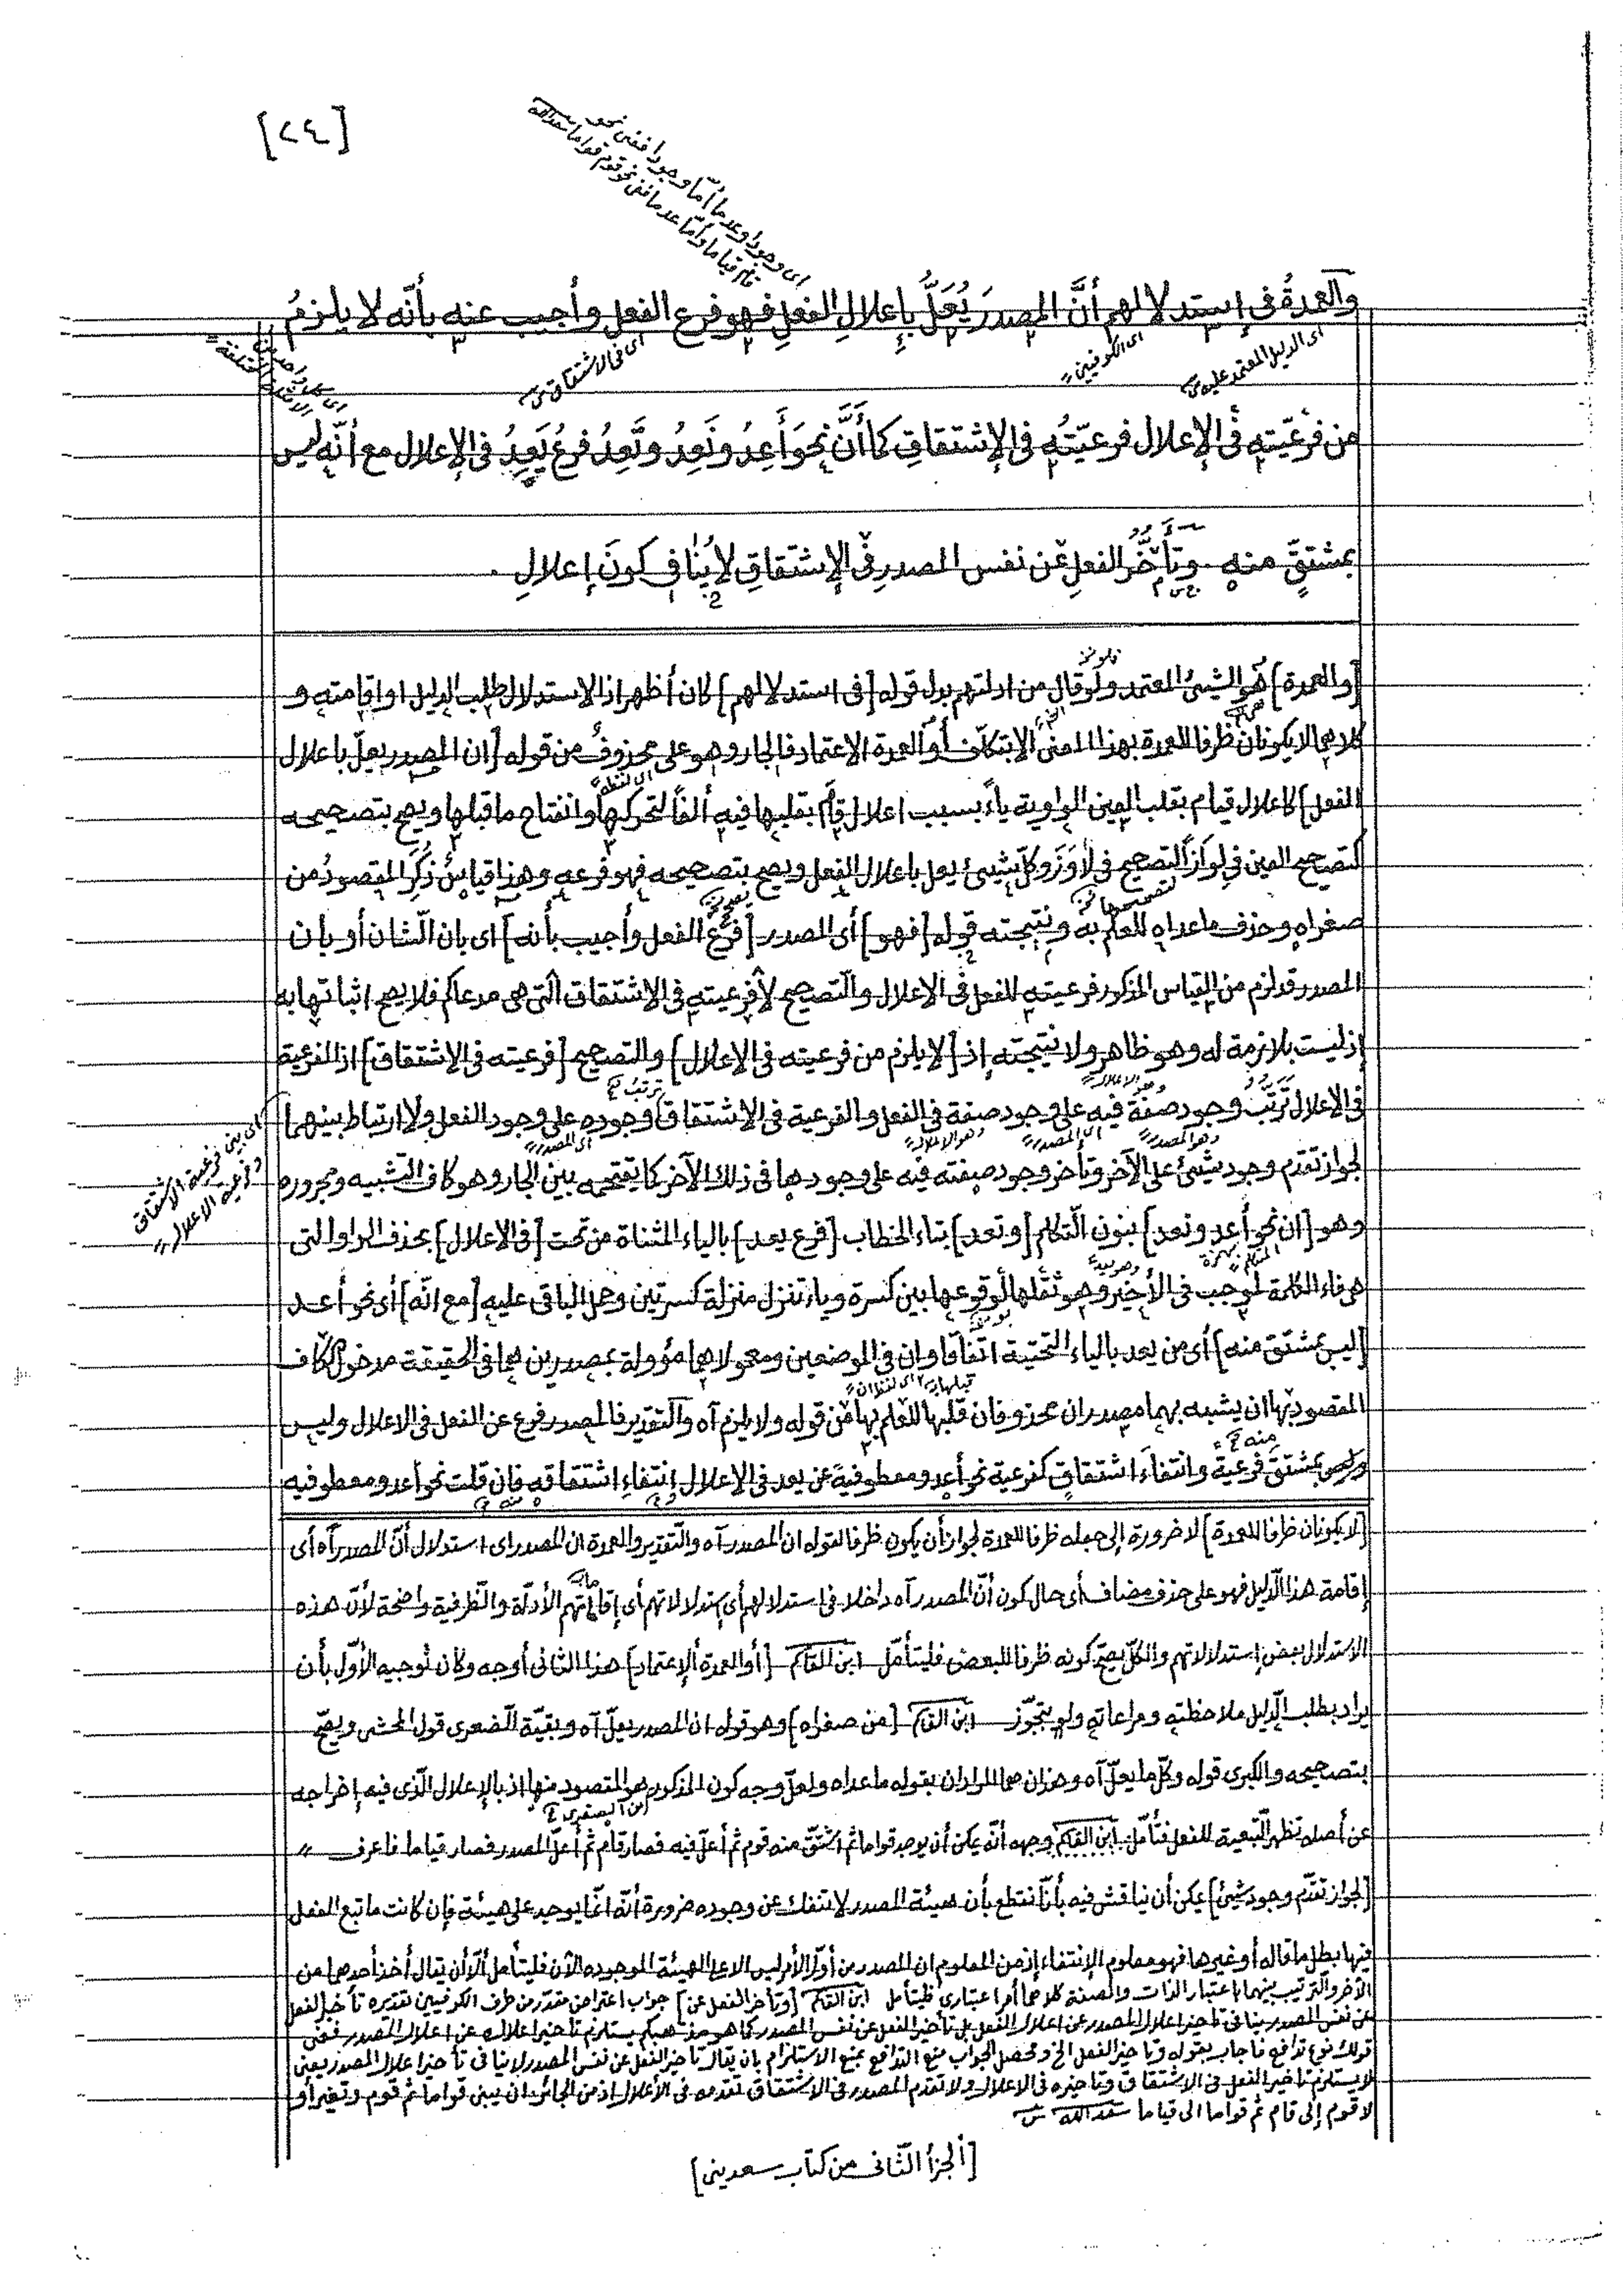 [٢٤]
اى وجودا وعدما أمّا وجودا ففى نحو
قام قياما وأمّا عدما ففى نحو قوم قواما سعدالله
والعمدةُ فى إستدلالهم أنَّ المصدرَ يُعَلُّ بإعلالِ الفعلِ فهو فرع الفعل وأجيب عنه بأنّه لا يلزمُ
اى الدليل المعتمد عليه
اى الكوفيين
اى فى الاشتقاق
من فرعيّته فى الإعلال فرعيّتُه فى الإشتقاقِ كما أنَّ نحوَ أَعِدُ ونَعِدُ وتَعِدُ فرعُ يَعِدُ فى الإعلال مع أنّه ليس
بمشتقٍّ منه وتأخُّرُ الفعلِ عن نفس المصدرِ فى الإشتقاقِ لا يُنافى كونَ إعلالِ
[والعمدة] هو الشيئ المعتمد ولو قال من ادلتهم بدل قوله [فى استدلالهم] كان أظهر اذ الاستدلال طلب الدليل او اقامته و
كلاهما لا يكونان ظرفا للعمدة بهذا المعنى الا بتكلّف أو العمدة الاعتماد فالجار وهو على محذوف من قوله [ان المصدر يعلّ باعلال
الفعل] كاعلال قيام بقلب العين الواوية ياءً بسبب اعلال قام بقلبها فيه ألفاً لتحركها وانفتاح ما قبلها ويصح بتصحيحه
كتصحيح العين فى لواذاً لتصحيح فى لاوَذَ وكلّ شيئ يعل باعلال الفعل ويصح بتصحيحه فهو فرعه وهذا قياسٌ ذُكِرَ المقصودُ من
صغراه وحذف ماعداه للعلم به ونتيجته قوله [فهو] أى المصدر [فرع الفعل وأجيب بأنه] اى بان الشان أو بان
المصدر قد لزم من القياس المذكور فرعيته للفعل فى الاعلال والتصحيح لا فرعيته فى الاشتقاق التى هى مدعاكم فلا يصح اثباتها به
إذ ليست بلازمة له وهو ظاهر ولا نتيجته إذ [لا يلزم من فرعيته فى الإعلال] والتصحيح [فرعيته فى الاشتقاق] اذ الفرعية
فى الاعلال تَرَتُّبُ وجود صفة فيه على وجود صفة فى الفعل والفرعية فى الاشتقاق وجوده على وجود الفعل ولا ارتباط بينهما
اى بين فرعية الاشتقاق
وفرعية الاعلال
لجواز تقدم وجود شيئ على الآخر وتأخر وجود صفته فيه على وجودها فى ذلك الآخر كما يقتحمه بين الجار وهو كاف التشبيه ومجروره
وهو [ان نحو أعد ونعد] بنون التكلم [وتعد] بتاء الخطاب [فرع يعد] بالياء المثناة من تحت [فى الاعلال] بحذف الواو التى
هى فاء الكلمة لموجب فى الأخير وهو ثقلها لوقوعها بين كسرة وياء تنزل منزلة كسرتين وحمل الباقى عليه [مع انّه] أى نحو أعد
[ليس بمشتق منه] أى من يعد بالياء التحتية اتفاقا وان فى الموضعين ومعمولاهما مؤولة بمصدرين هما فى الحقيقة مدخول الكاف
المقصود بها ان يشبه بهما مصدران محذوفان قبلها للعلم بها من قوله ولا يلزم آه والتقدير فالمصدر فرع عن الفعل فى الاعلال وليس
بمشتق فرعية وانتفاءَ اشتقاقٍ كفرعية نحو أعد ومعطوفيه عن يعد فى الإعلال إنتفاءِ اشتقاقه فان قلت نحو اعد ومعطوفيه
[لا يكونان ظرفا للعمدة] لا ضرورة إلى جعله ظرفا للعمدة لجواز أن يكون ظرفا لقوله ان المصدر آه والتقدير والعمدة ان المصدر اى استدلال أنّ المصدر آه أى
إقامة هذا الدّليل فهو على حذف مضاف أى حال كون أنّ المصدر آه داخلا فى استدلالهم أى إستدلالاتهم أى إقاماتهم الأدلّة والظرفية واضحة لأنّ هذه
الاستدلال بعض إستدلالاتهم والكلّ يصحّ كونه ظرفا للبعض فليتأمّل ابن القاسم [أو العمدة ألإعتماد] هذا الثانى أوجه وكان توجيه الأوّل بأن
يراد بطلب الدّليل ملاحظته ومراعاته ولو بتجوّز ابن القاسم [من صغراه] وهو قوله ان المصدر يعلّ آه وبقيّة الصغرى قول المحشى ويصحّ
بتصحيحه والكبرى قوله وكلّ ما يعلّ آه وهذان هما المرادان بقوله ماعداه ولعلّ وجه كون المذكور هو المقصود منها اذ بالإعلال الّذى فيه إخراجه
عن أصله تظهر التّبعية للفعل فتأمّل ابن القاسم وجهه أنّه يمكن أن يوجد قواما ثم اشتقّ منه قوم ثم أعلّ فيه فصار قام ثم أعلّ المصدر فصار قياما فاعرف
[لجواز تقدّم وجود شيئ] يمكن أن يناقش فيه بأنّا نقطع بأن هيئة المصدر لا تنفك عن وجوده ضرورة أنّه انّما يوجد على هيئة فإن كانت ما تبع الفعل
فيها بطل ما قاله أو غيرها فهو معلوم الإنتفاء إذ من المعلوم ان المصدر من أوّل الأمر ليس الا على الهيئة الموجوده الآن فليتأمل ألّا أن يقال أخذ أحدهما من
الآخر والترتيب بينهما باعتبار الذات والصفة كلاهما أمر اعتبارى فليتأمل ابن القاسم [وتأخر الفعل عن] جواب اعتراض مقدّر من طرف الكوفيين تقديره تأخير الفعل
عن نفس المصدر ينافى تأخير اعلال المصدر عن اعلال الفعل بل تأخير الفعل عن نفس المصدر كما هو مذهبكم يستلزم تأخير اعلاله عن اعلال المصدر ففى
قولك نوع تدافع فأجاب بقوله وتأخير الفعل الخ ومحصل الجواب منع التدافع بمنع الاستلزام بان يقال تأخير الفعل عن نفس المصدر لا ينافى تأخير اعلال المصدر يعنى
لا يستلزم تأخير الفعل فى الاشتقاق وتأخيره فى الاعلال ولا تقدم المصدر فى الاشتقاق تقدمه فى الأعلال إذ من الجائز ان يبنى قواما ثم قوم وتغير أو
لا قوم إلى قام ثم قواما الى قياما سعدالله
[ألجزأ الثّانى من كتاب سعدينى]